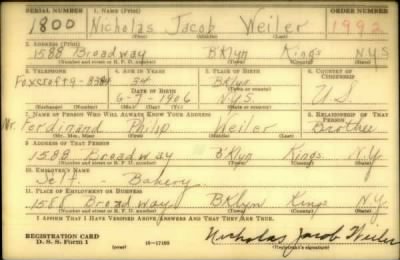 SERIAL NUMBER 1. NAME (Print) ORDER NUMBER
1800 Nicholas Jacob Weiler 1992
(First) (Middle) (Last)
2. ADDRESS (Print)
1588 Broadway BKlyn Kings N.Y.S
(Number and street or R. F. D. number) (Town) (County) (State)
3. TELEPHONE 4. AGE IN YEARS 5. PLACE OF BIRTH 6. COUNTRY OF CITIZENSHIP
Foxcroft 9-8384 34 BKlyn
DATE OF BIRTH (Town or county)
6-7-1906 N.Y.S. U S
(Exchange) (Number) (Mo.) (Day) (Yr.) (State or country)
7. NAME OF PERSON WHO WILL ALWAYS KNOW YOUR ADDRESS 8. RELATIONSHIP OF THAT PERSON
Mr. Ferdinand Philip Weiler Brother
(Mr., Mrs., Miss) (First) (Middle) (Last)
9. ADDRESS OF THAT PERSON
1588 Broadway B'Klyn Kings N.Y.
(Number and street or R. F. D. number) (Town) (County) (State)
10. EMPLOYER'S NAME
Self. - Bakery
11. PLACE OF EMPLOYMENT OR BUSINESS
1588 Broadway BKlyn Kings N.Y.
(Number and street or R. F. D. number) (Town) (County) (State)
I AFFIRM THAT I HAVE VERIFIED ABOVE ANSWERS AND THAT THEY ARE TRUE.
REGISTRATION CARD
D. S. S. Form 1 (over) 16-17105 Nicholas Jacob Weiler
(Registrant's signature)